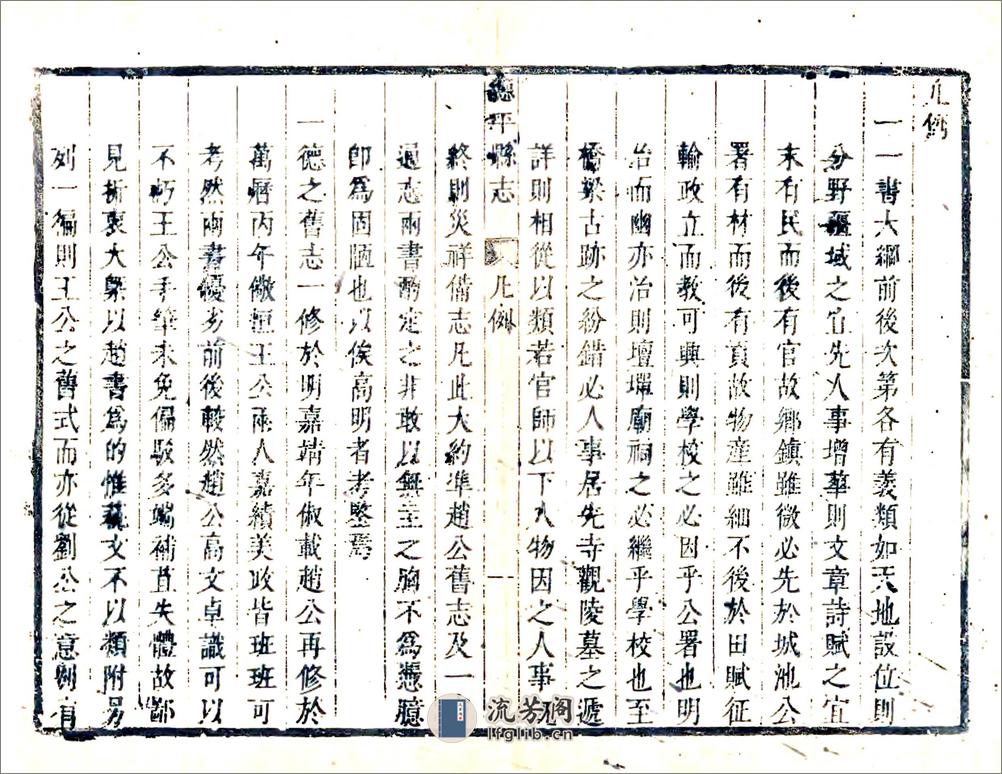 凡例
一一書大綱前後次第各有義類如天地設位則
分野疆域之宜先人事增華則文章詩賦之宜
末有民而後有官故鄉鎮雖微必先於城池公
署有材而後有貢故物產雖細不後於田賦征
輸政立而教可興則學校之必因乎公署也明
治而幽亦治則壇壝廟祠之必繼乎學校也至
橋梁古跡之紛錯必人事居先寺觀陵墓之遞
詳則相從以類若官師以下人物因之人事
德平縣志
凡例
一
終則災祥備志凡此大約準趙公舊志及一
通志兩書酌定之非敢以無主之胸不為憑臆
即為固陋也以俟高明者考鑒焉
一德之舊志一修於明嘉靖年俶載趙公再修於
萬曆丙年儆恒王公兩人嘉績美政皆班班可
考然兩書優劣前後較然趙公高文卓識可以
不朽王公手筆未免偏駁多端補苴失體故鄙
見折衷大槩以趙書為的惟藝文不以類附另
列一編則王公之舊式而亦從劉公之意例有
流芳阁
lfglib.cn